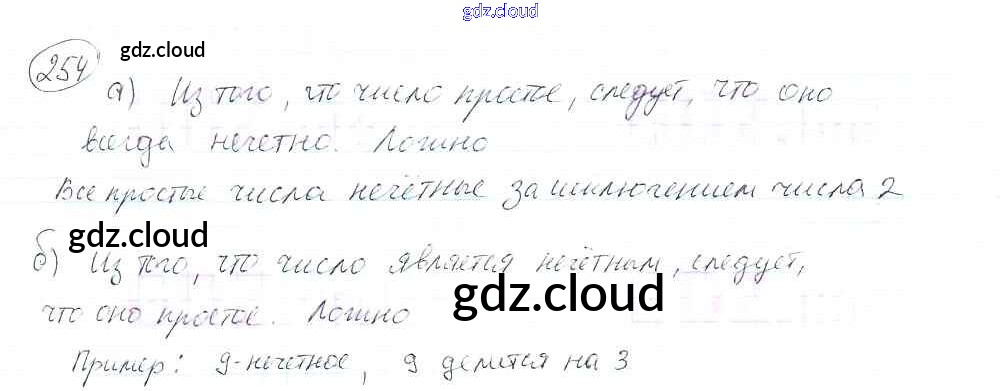 gdz.cloud
254
gdz.cloud
а) Из того, что число простое, следует, что оно
всегда нечетно. Ложно
Все простые числа нечётные за исключением числа 2
gdz.cloud
б) Из того, что число является нечётным, следует,
что оно простое. Ложно
gdz.cloud
Пример: 9-нечетное, 9 делится на 3